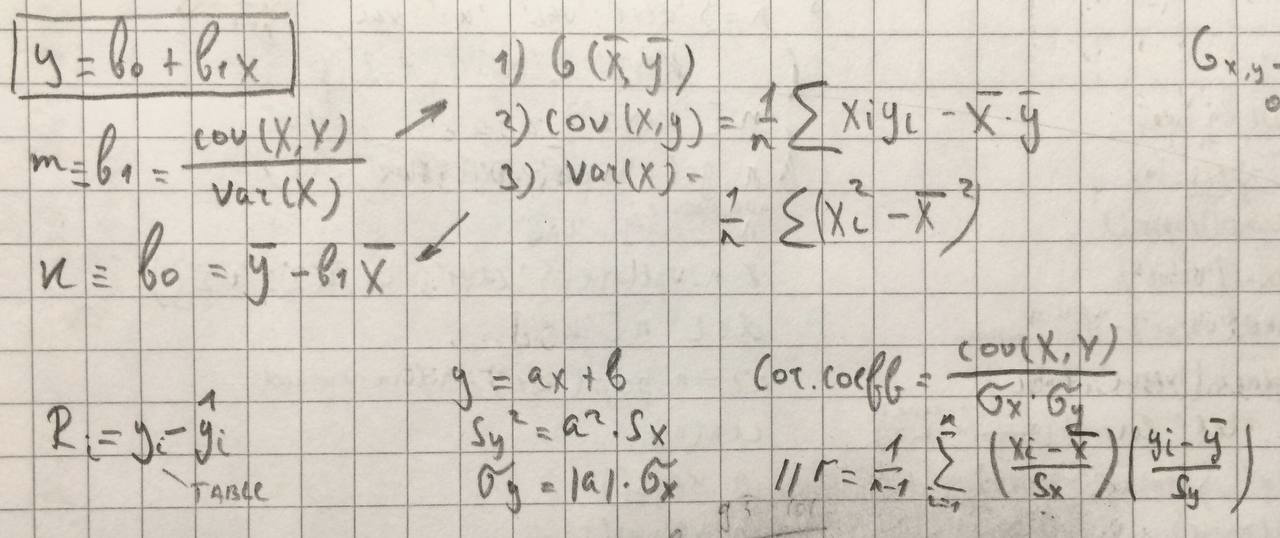 y = b₀ + b₁x
m ≡ b₁ = cov(X,Y) / var(X)
n ≡ b₀ = y̅ - b₁ x̅
1) G(x̅, y̅)
2) cov(x,y) = 1/n ∑ xᵢyᵢ - x̅·y̅
3) var(x) =
1/n ∑(xᵢ² - x̅²)
Gₓ,ᵧ =
Rᵢ = yᵢ - ŷᵢ
TABLE
y = ax + b
sᵧ² = a²·sₓ
σᵧ = |a|·σₓ
Cor.coeff = cov(X,Y) / σₓ·σᵧ
// r = 1/n-1 ∑ⁿᵢ₌₁ (xᵢ - x̅ / sₓ)(yᵢ - y̅ / sᵧ)